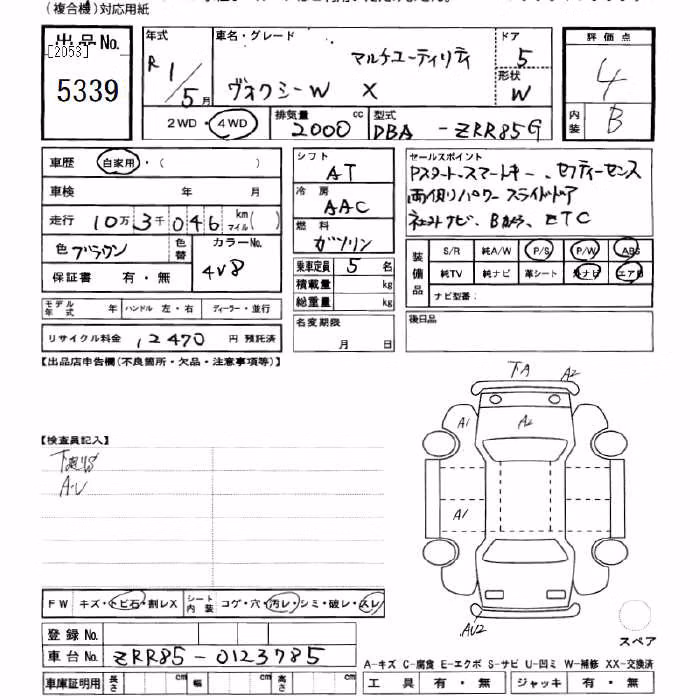 (複合機)対応用紙
出品No.
[2053]
5339
年式 R 1/5 月
車名・グレード マルチユーティリティ
ヴォクシーW X
ドア 5
形状 W
評価点 4
内装 B
2WD・4WD
排気量 2000 cc
型式 DBA -ZRR85G
車歴 自家用・( )
車検 年 月
走行 10万3千046 km マイル( )
色 ブラウン 色替 カラーNo. 4V8
保証書 有・無
シフト AT
冷房 AAC
燃料 ガソリン
乗車定員 5 名
積載量 kg
総重量 kg
セールスポイント
Pスタート、スマートキー、セフティーセンス
両側パワースライドドア
社外ナビ、Bカメラ、ETC
装備品 S/R 純A/W P/S P/W ABS
純TV 純ナビ 革シート 外ナビ エアB
ナビ型番:
モデル年式 年 ハンドル 左・右 ディーラー・並行
リサイクル料金 12470 円 預託済
名変期限 月 日
後日品
【出品店申告欄(不良箇所・欠品・注意事項等)】
下A A2
A1 A2
A1
AU2
【検査員記入】
A・U
FW キズ・トビ石・割レX
シート内装 コゲ・穴・汚レ・シミ・破レ・スレ
登録No.
車台No. ZRR85-0123785
車庫証明用 長さ cm 幅 cm 高さ cm
スペア
A-キズ C-腐食 E-エクボ S-サビ U-凹ミ W-補修 XX-交換済
工具 有・無 ジャッキ 有・無